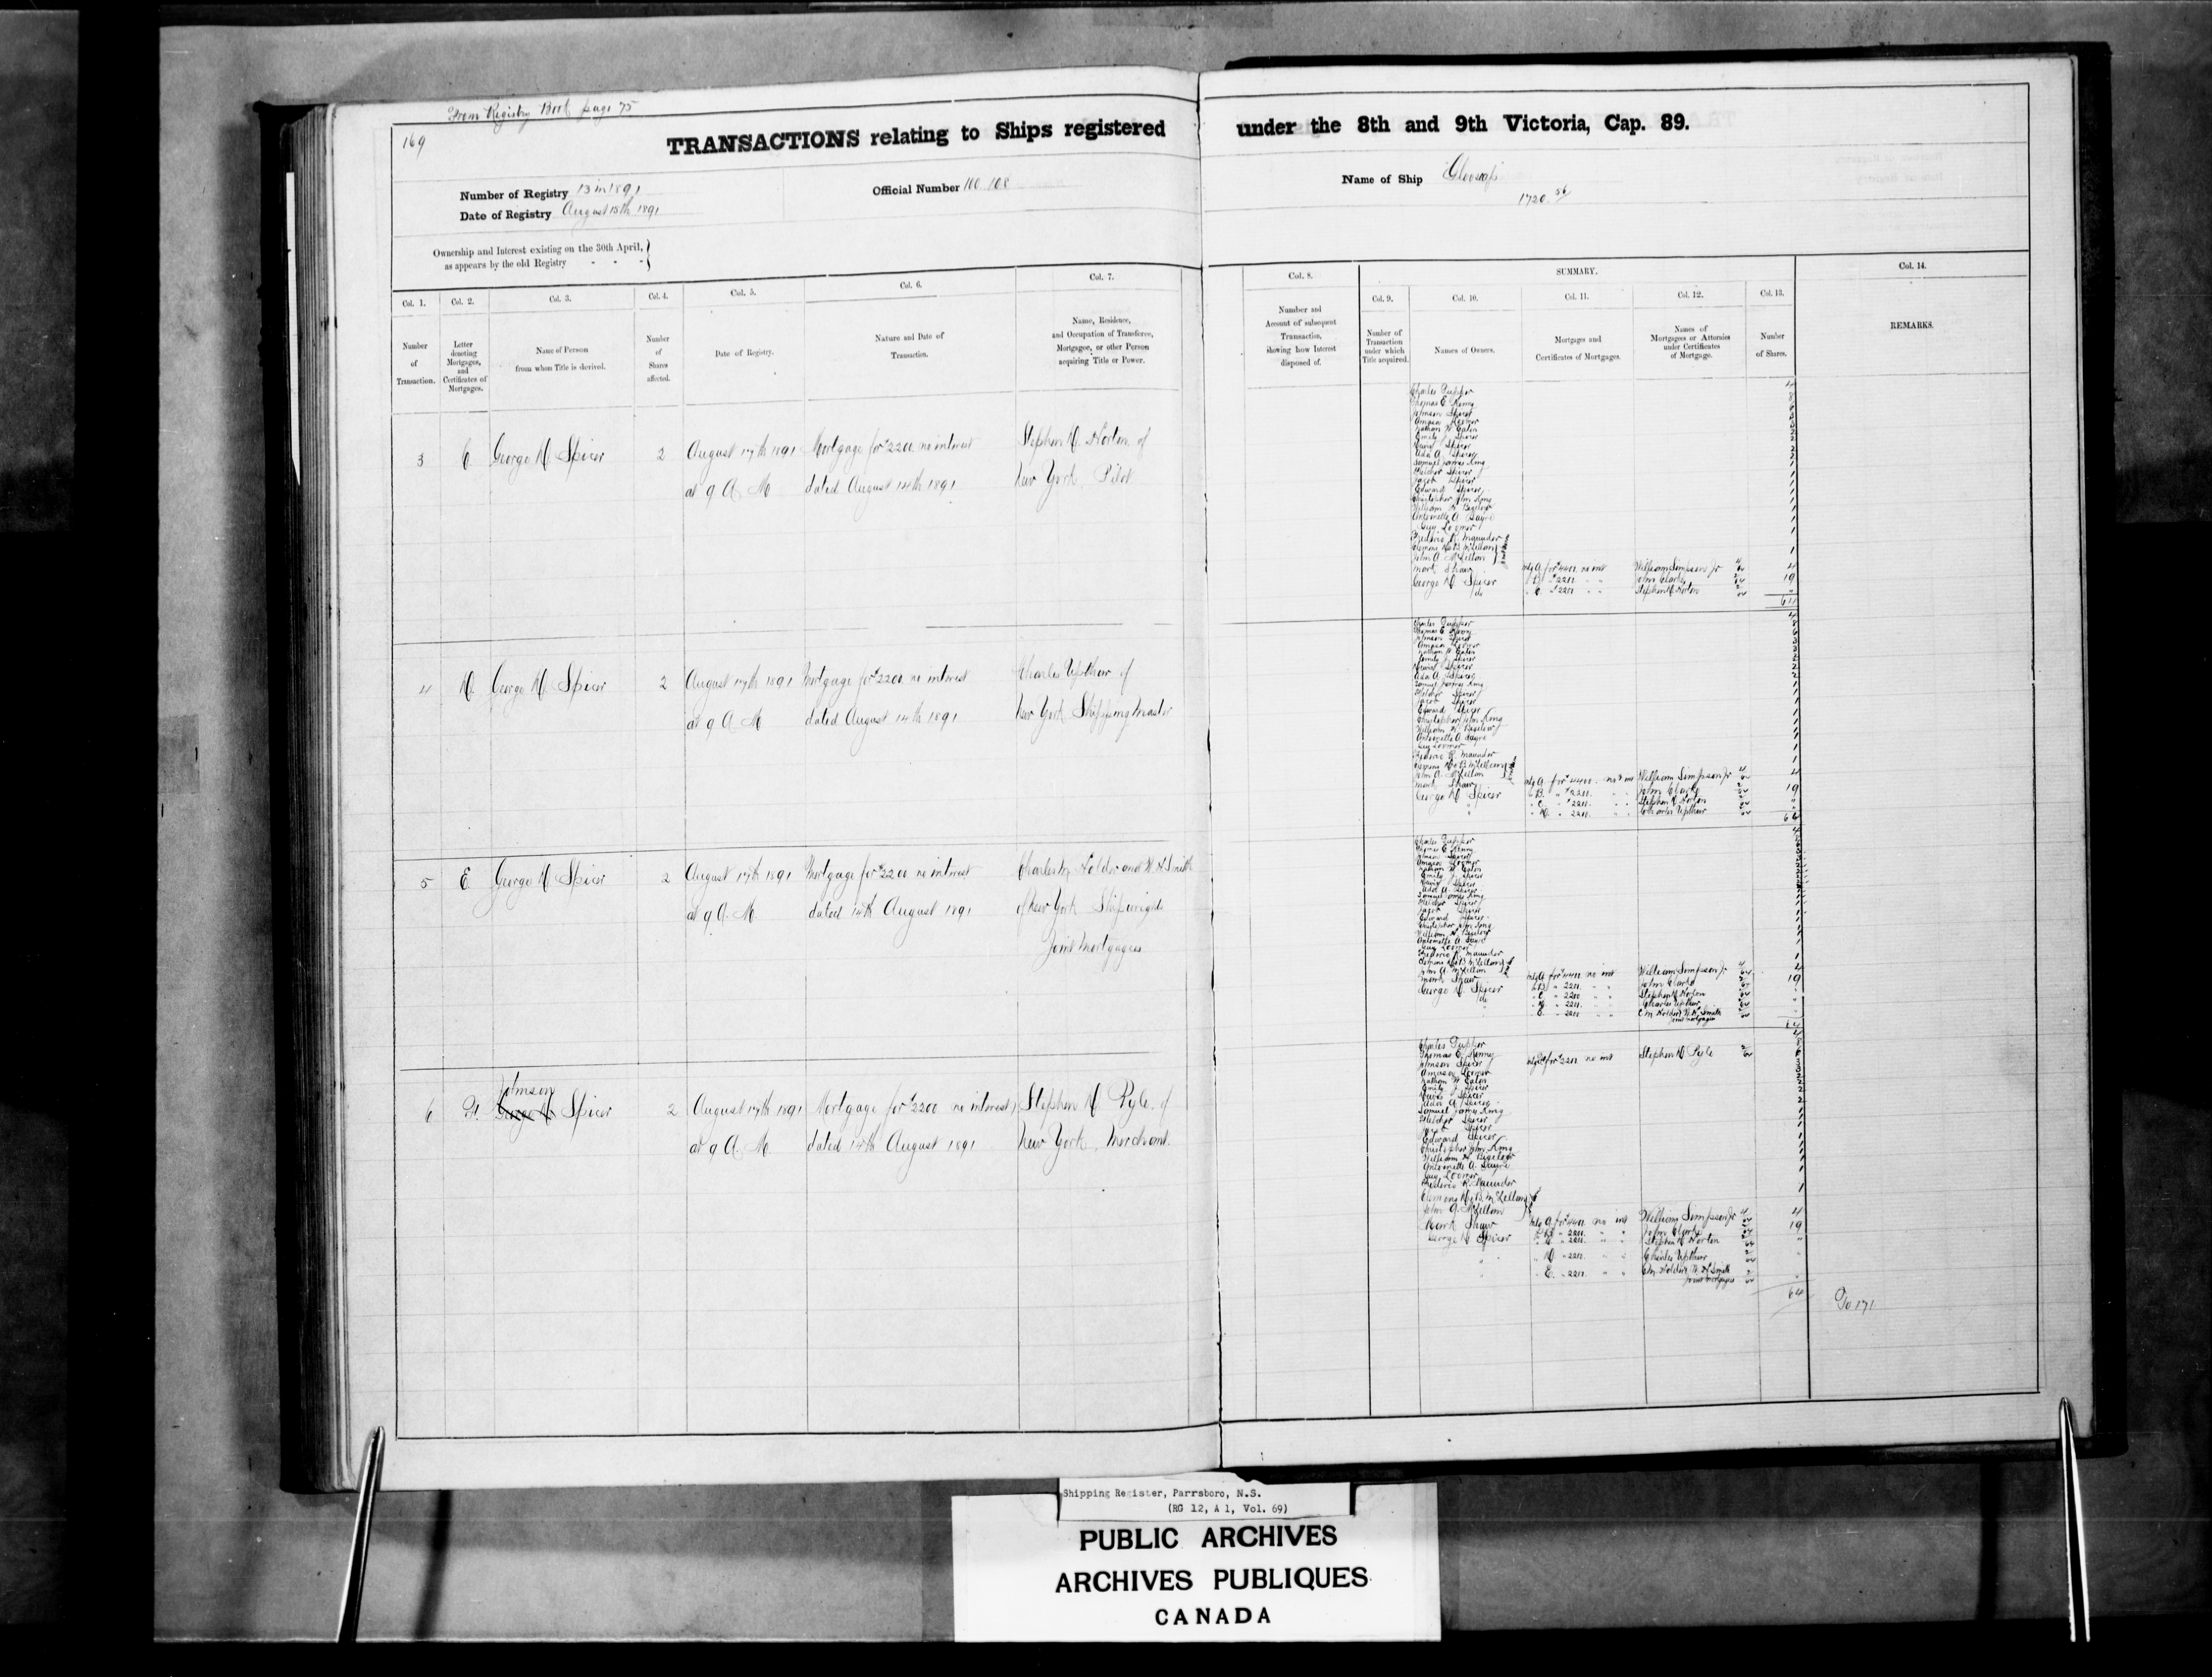 From Registry Book page 75
169
TRANSACTIONS relating to Ships registered under the 8th and 9th Victoria, Cap. 89.
Number of Registry 13 in 1891
Official Number 100.108
Name of Ship Glooscap
Date of Registry August 15th 1891
1720.56
Ownership and Interest existing on the 30th April,
as appears by the old Registry - - -
SUMMARY.
Col. 1. Col. 2. Col. 3. Col. 4. Col. 5. Col. 6. Col. 7. Col. 8. Col. 9. Col. 10. Col. 11. Col. 12. Col. 13. Col. 14.
Number of Transaction.
Letter denoting Mortgages, and Certificates of Mortgages.
Name of Person from whom Title is derived.
Number of Shares affected.
Date of Registry.
Nature and Date of Transaction.
Name, Residence, and Occupation of Transferee, Mortgagee, or other Person acquiring Title or Power.
Number and Account of subsequent Transaction, showing how Interest disposed of.
Number of Transaction under which Title acquired.
Names of Owners.
Mortgages and Certificates of Mortgages.
Names of Mortgagees or Attornies under Certificates of Mortgage.
Number of Shares.
REMARKS.
3 C. George D. Spicer 2 August 17th 1891 Mortgage for $2200 no interest Stephen D. Horton of
at 9 A. M. dated August 14th 1891 New York Pilot
Charles Tupper
Thomas E Kenny
Johnson Spicer
Amasa Loomer
Nathan W Eaton
Emily J. Spicer
David Spicer
Ada A. Spicer
Samuel James King
Melchor Spicer
Jacob Spicer
Edward Spicer
Christopher John King
William H Bigelow
Antoinette A Sayre
Guy Loomer
Frederic R. Maunder
John A. McLellan
Mark Shaw mtg A for $4400 no int William Simpson Jr 4
George D. Spicer B $2200 John Clarke 19
do C. $2200 Stephen D Horton
64
4 D. George D. Spicer 2 August 17th 1891 Mortgage for $2200 no interest Charles Upthur of
at 9 A. M. dated August 14th 1891 New York Shipping Master
Charles Tupper
Thomas E Kenny
Johnson Spicer
Amasa Loomer
Nathan W Eaton
Emily J Spicer
David Spicer
Ada A. Spicer
Samuel James King
Melchor Spicer
Jacob Spicer
Edward Spicer
Christopher John King
William H. Bigelow
Antoinette A. Sayre
Guy Loomer
Frederic R. Maunder
John A. McLellan
Mark Shaw mtg A for $4400 no int William Simpson Jr 4
George D Spicer B. $2200 John Clarke 19
C. $2200 Stephen D Horton
D. 2200 Charles Upthur
64
5 E George D Spicer 2 August 17th 1891 Mortgage for $2200 no interest Charles M Holder and W H Smith
at 9 A. M. dated 14th August 1891 of New York Shipwrights
Joint Mortgagees
Charles Tupper
Thomas E Kenny
Johnson Spicer
Amasa Loomer
Nathan W Eaton
Emily J Spicer
David Spicer
Ada A. Spicer
Samuel James King
Melchor Spicer
Jacob Spicer
Edward Spicer
Christopher John King
William H. Bigelow
Antoinette A. Sayre
Guy Loomer
Frederic R. Maunder
John A. McLellan
Mark Shaw mtg A for $4400 no int William Simpson Jr 4
George D. Spicer B 2200 John Clarke 19
do C 2200 Stephen D Horton
D 2200 Charles Upthur
E. 2200 C M Holder, W. H. Smith
joint mortgagees
64
6 F Johnson Spicer 2 August 17th 1891 Mortgage for $2200 no interest Stephen D Pyle of
at 9 A. M. dated 14th August 1891 New York, Merchant.
Charles Tupper
Thomas E. Kenny
Johnson Spicer mtg F for $2200 no int Stephen D Pyle
Amasa Loomer
Nathan W Eaton
Emily J Spicer
David Spicer
Ada A. Spicer
Samuel James King
Melchor Spicer
Jacob Spicer
Edward Spicer
Christopher John King
William H. Bigelow
Antoinette A. Sayre
Guy Loomer
Frederic R. Maunder
John A. McLellan
Mark Shaw mtg A for $4400 no int William Simpson Jr 4
George D Spicer B 2200 John Clarke 19
C 2200 Stephen D Horton
D 2200 Charles Upthur
E. 2200 C M Holder, W. H Smith
joint mortgagees
64
To 171
Shipping Register, Parrsboro, N.S.
(RG 12, A 1, Vol. 69)
PUBLIC ARCHIVES
ARCHIVES PUBLIQUES
CANADA